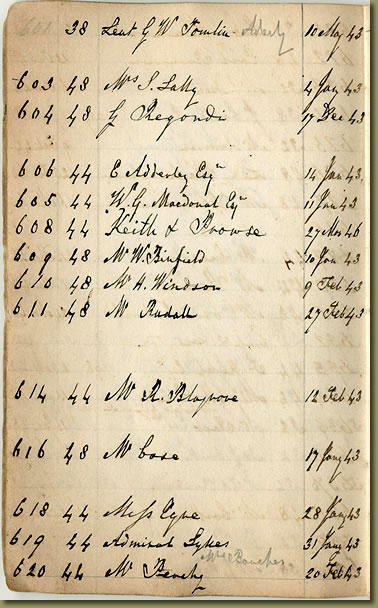 601 38 Lieut G W Tomlin Adderly 10 May 43
603 48 Mrs S. Lally 4 Jan 43
604 48 G Regondi 17 Dec 43
606 44 E Adderley Esqr 14 Jan 43
605 44 W. G. Macdonal Esqr 11 Jan 43
608 44 Keith & Prowse 27 Mar 46
609 48 Mr W. Binfield 10 Jan 43
610 48 Mr H. Windsor 9 Feb 43
611 48 Mr Rudall 27 Feb 43
614 44 Mr R. Blagrove 12 Feb 43
616 48 Mr Case 17 Jany 43
618 44 Miss Eyre 28 Jany 43
619 44 Admiral Sykes 31 Jany 43
620 44 Mr 20 Feb 43